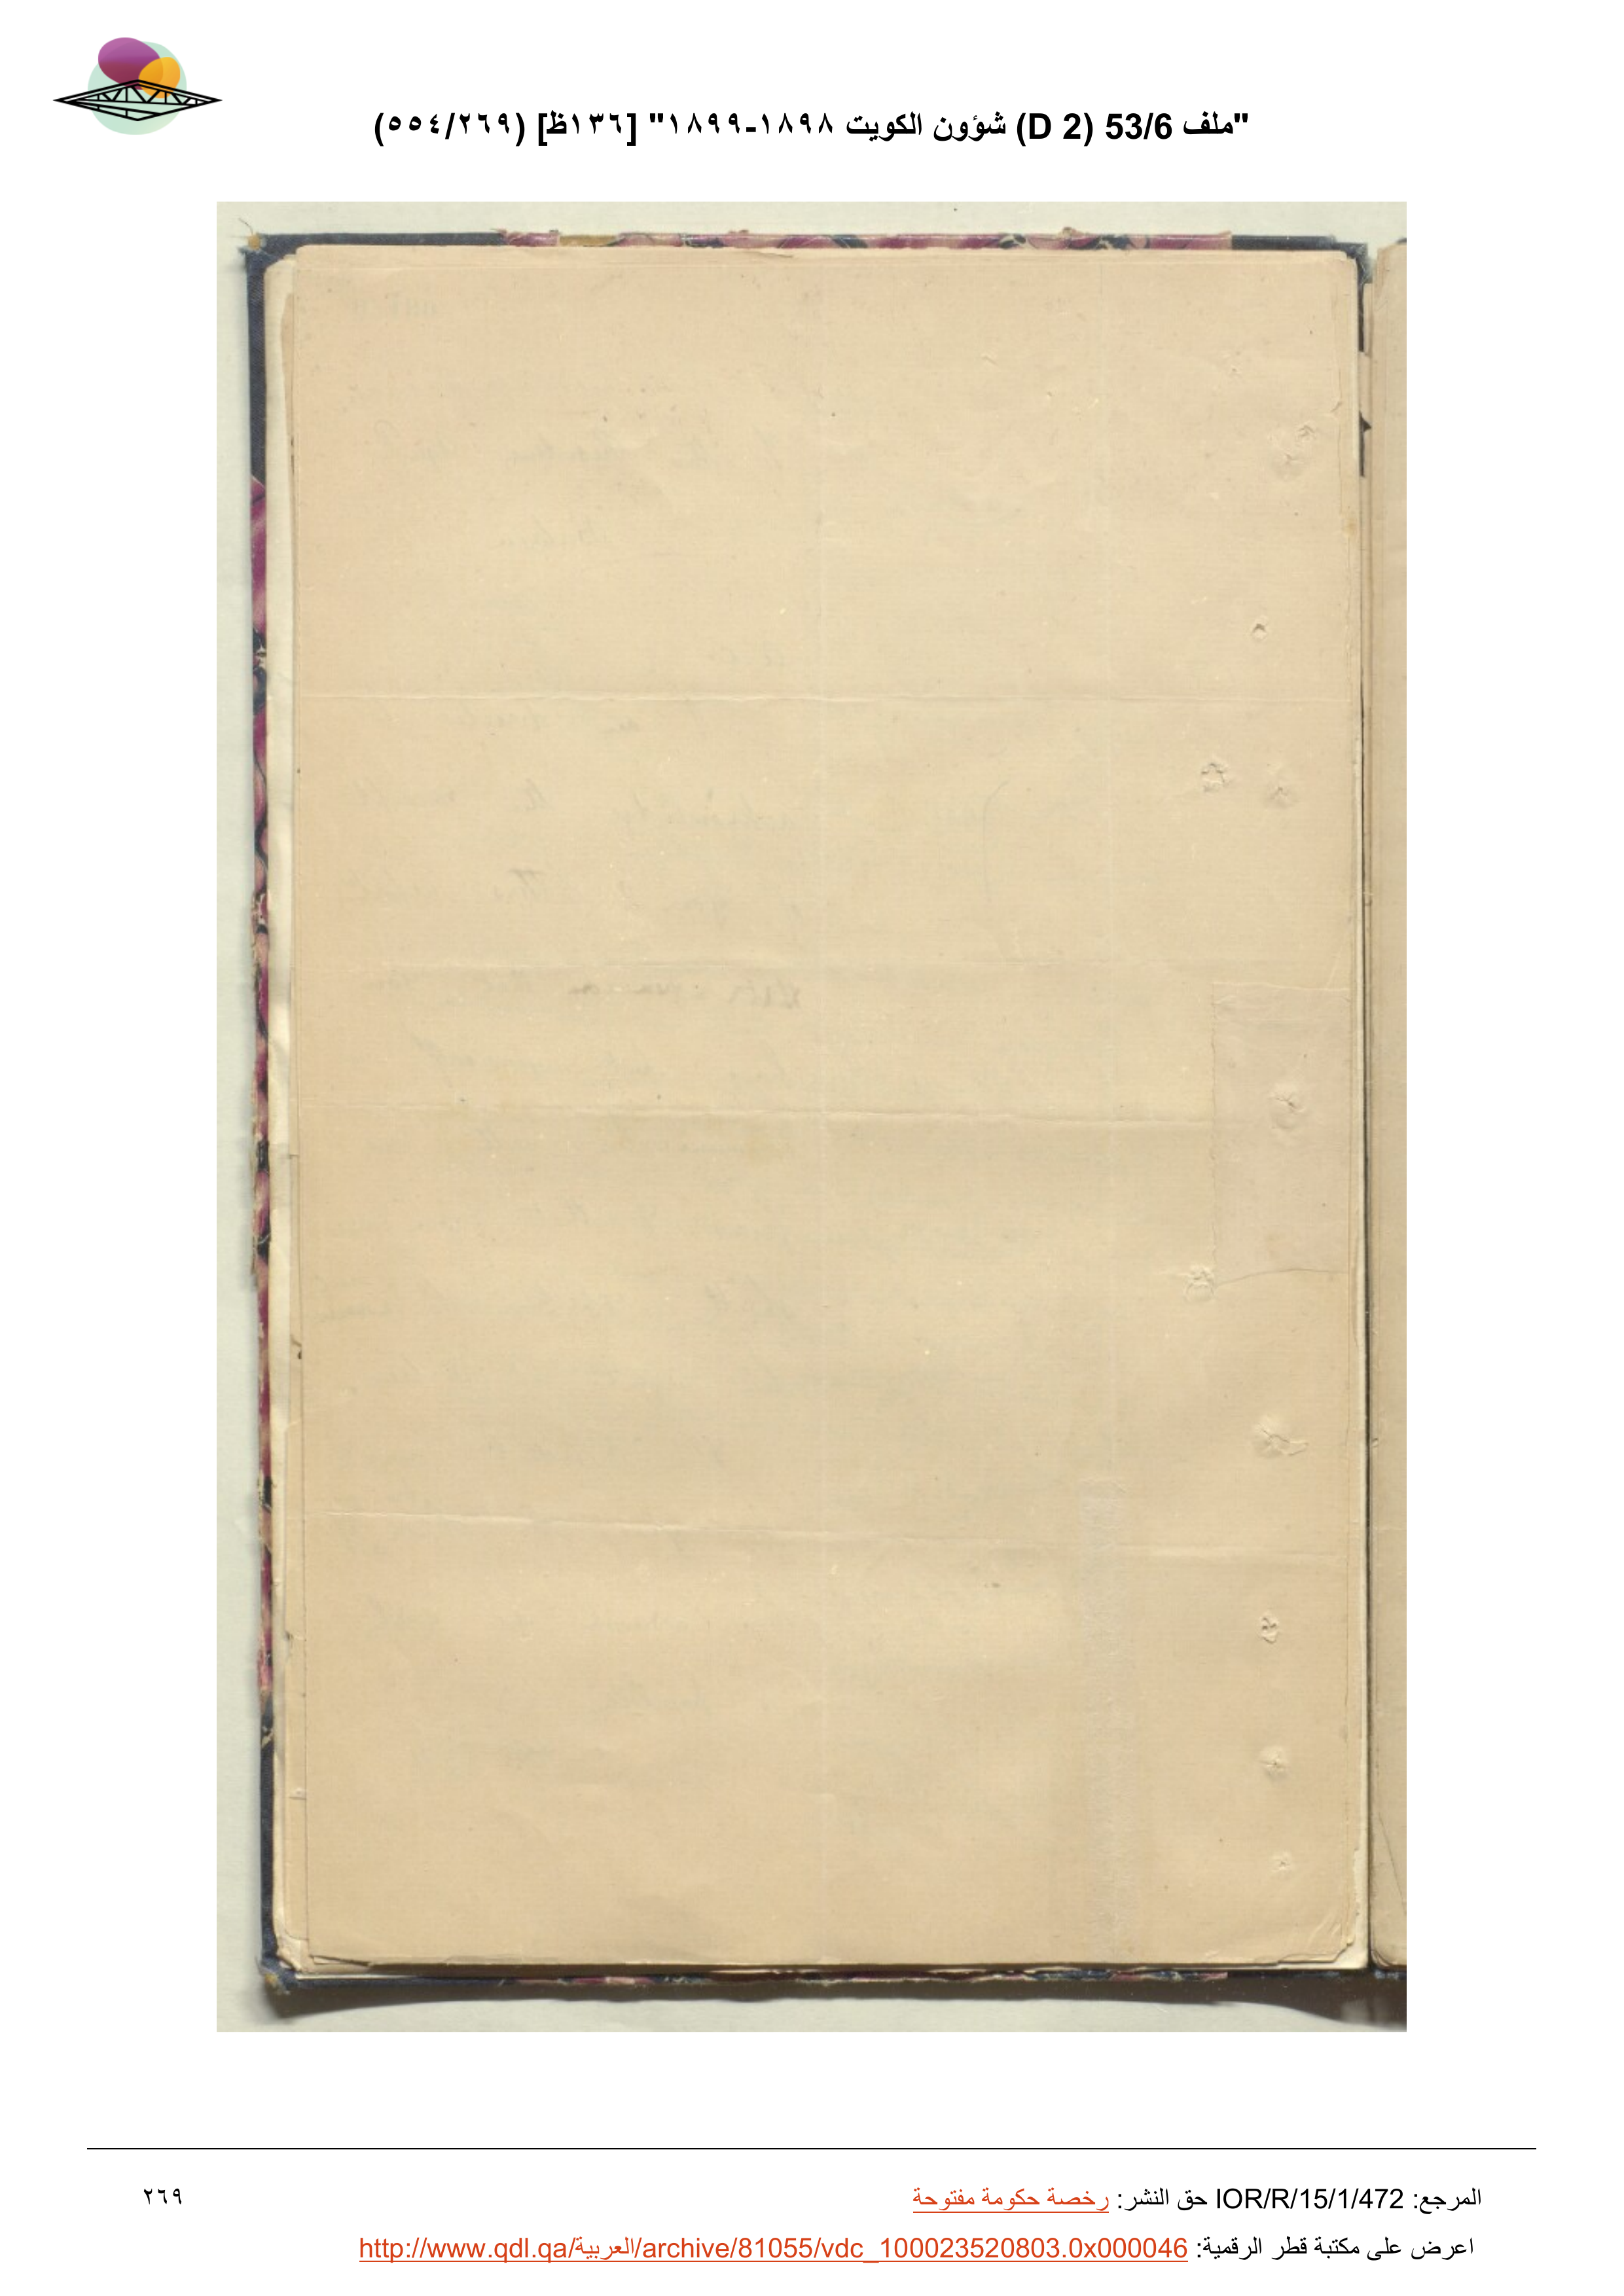 "ملف 53/6 (D 2) شؤون الكويت ١٨٩٨-١٨٩٩" [١٣٦ظ] (٢٦٩/٥٥٤)
المرجع: IOR/R/15/1/472 حق النشر: رخصة حكومة مفتوحة
٢٦٩
اعرض على مكتبة قطر الرقمية: http://www.qdl.qa/العربية/archive/81055/vdc_100023520803.0x000046